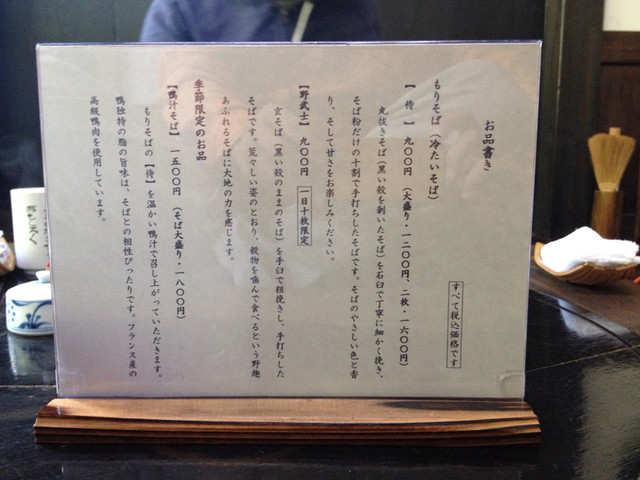 お品書き
すべて税込価格です
もりそば（冷たいそば）
【 侍 】 九〇〇円 （大盛り・一二〇〇円、二枚・一六〇〇円）
丸抜きそば（黒い殻を剥いたそば）を石臼で丁寧に細かく挽き、
そば粉だけの十割で手打ちしたそばです。そばのやさしい色と香
り、そして甘さをお楽しみください。
【野武士】 九〇〇円 一日十枚限定
玄そば（黒い殻のままのそば）を手臼で粗挽きし、手打ちした
そばです。荒々しい姿のとおり、穀物を噛んで食べるという野趣
あふれるそばに大地の力を感じます。
季節限定のお品
【鴨汁そば】 一五〇〇円 （そば大盛り・一八〇〇円）
もりそばの【侍】を温かい鴨汁で召し上がっていただきます。
鴨独特の脂の旨味は、そばとの相性ぴったりです。フランス産の
高級鴨肉を使用しています。